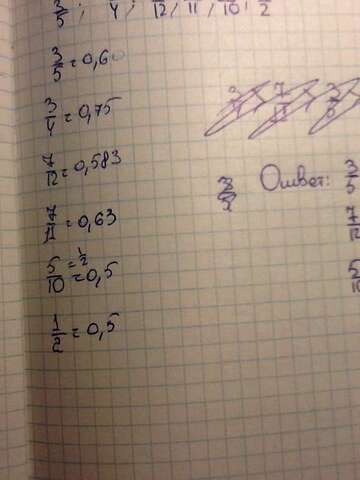 3/5; 3/4, 7/12, 7/11, 5/10, 1/2
3/5 = 0,60
3/4 = 0,75
7/12 = 0,583
7/11 = 0,63
5/10 = 1/2 = 0,5
1/2 = 0,5
Ответ: 3/5
7/12
5/10